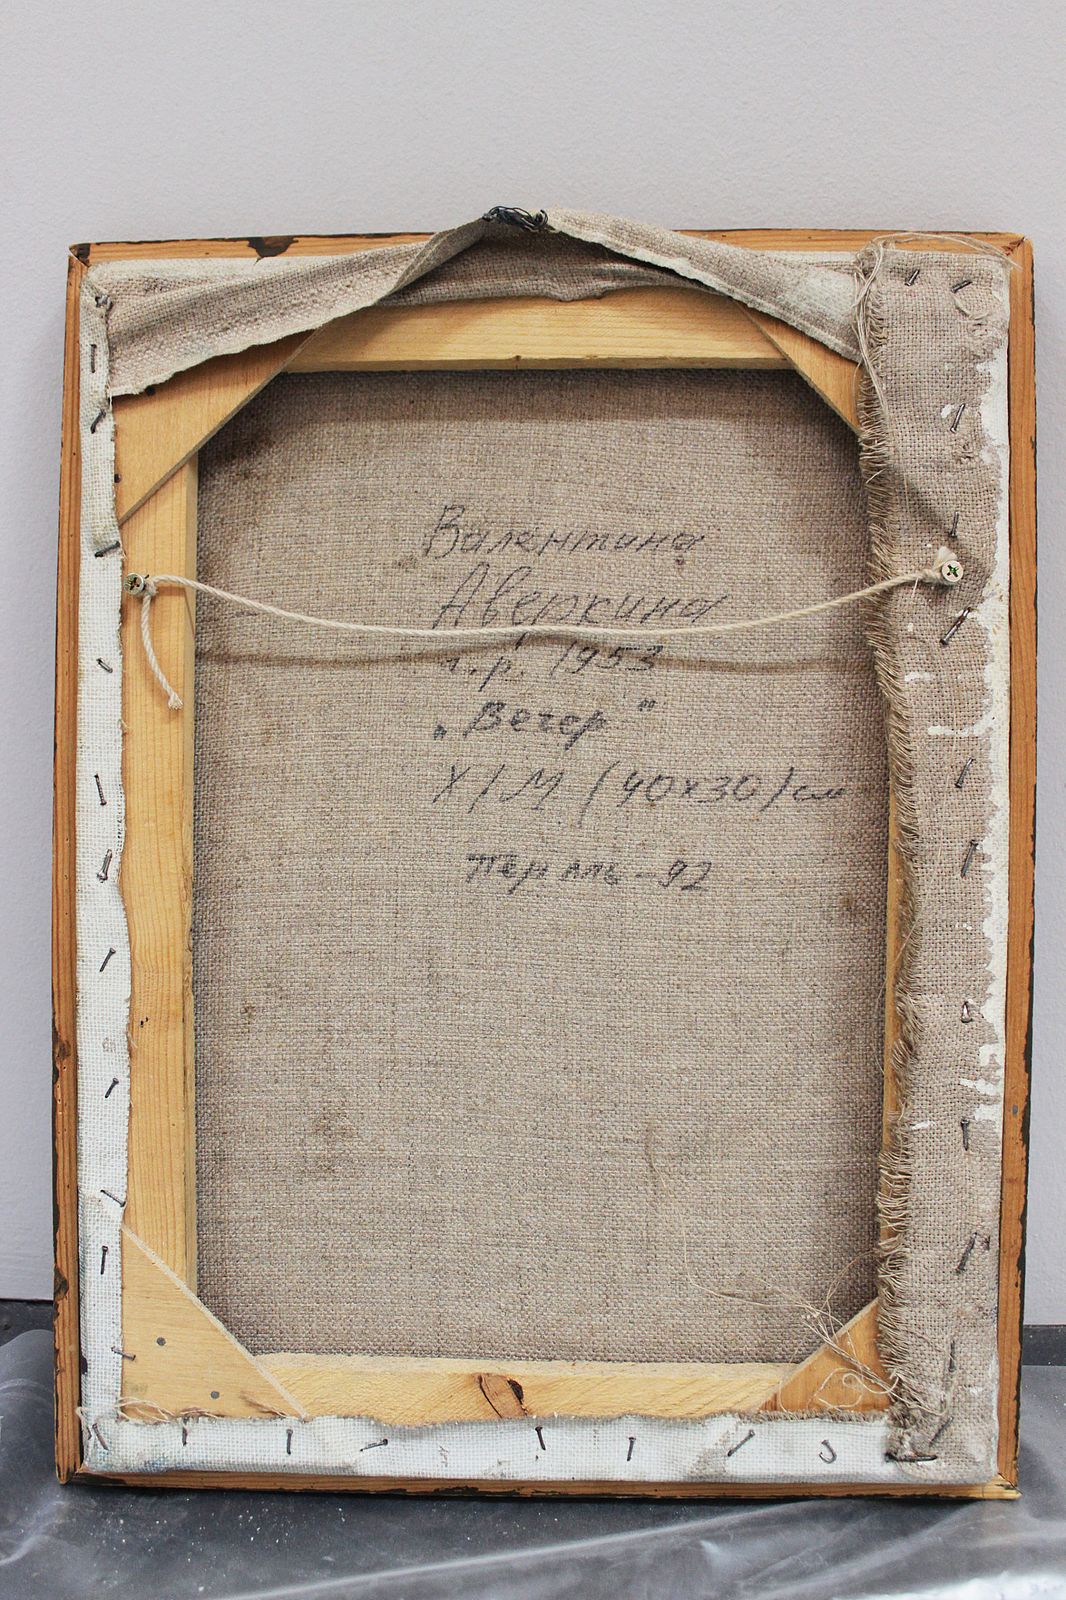 Валентина
Аверкина
г.р. 1953
„Вечер"
Х/М (40х30)см
-92